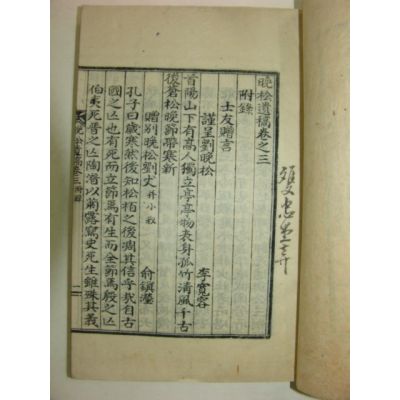 晚松遺稿卷之三
附錄
士友贈言
謹呈劉晚松
李寬容
首陽山下有高人獨立亭亭物表身孤竹清風千古
後蒼松晚節帶寒新
贈別晚松劉丈 并小叙
俞鎮
孔子曰歲寒然後知松栢之後凋其信乎哉自古
國之亾也有死而立節焉有生而全節焉殷之亾
伯夷死晉之亾陶潛以 史死生雖殊其義
晚松遺稿卷三 附錄 一